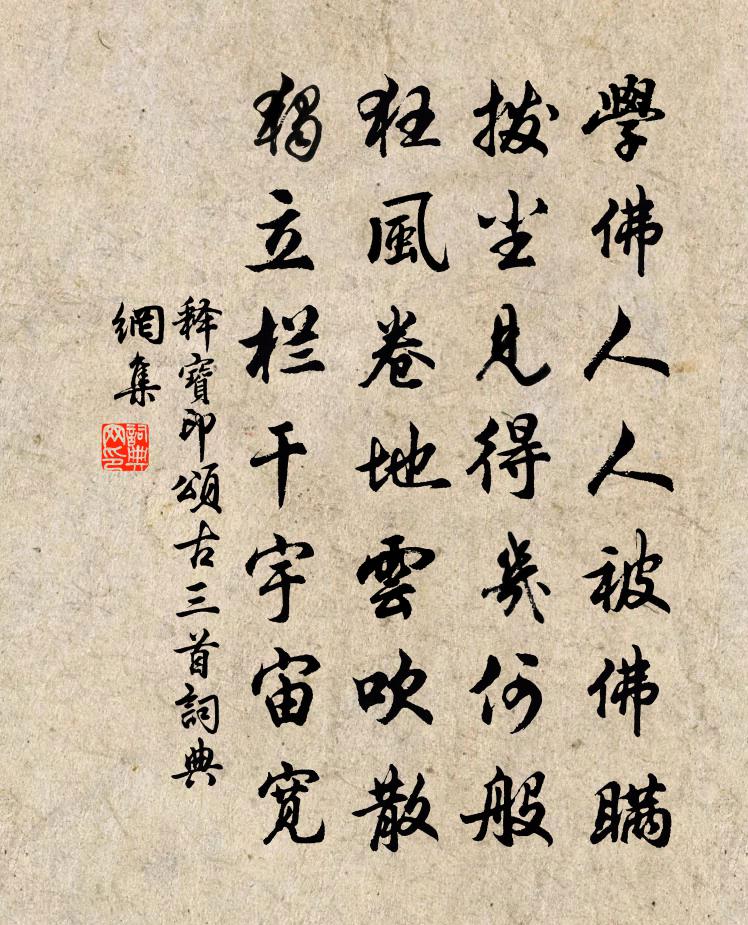 學佛人人被佛瞞
拨坐見得幾何般
狂風卷地雲吹散
獨立栏干宇宙寛
释寶印頌古三首詞典
網集
詞典
网印